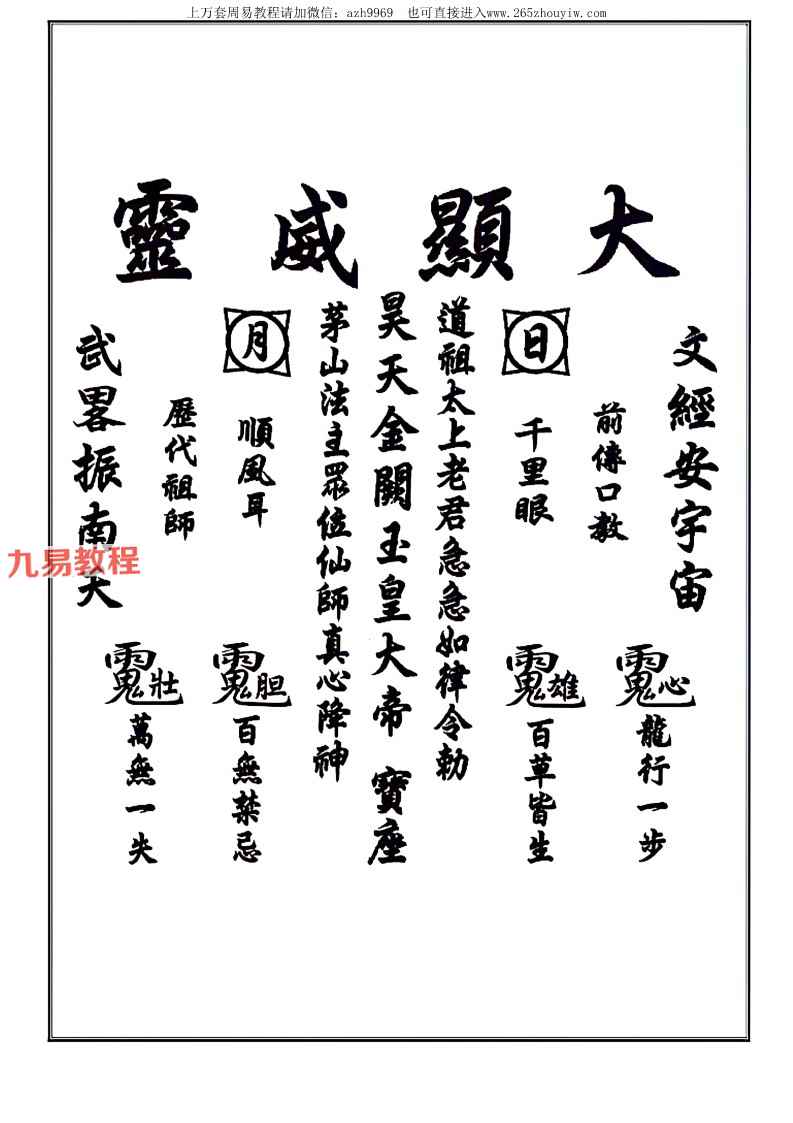 上万套周易教程请加微信：azh9969　也可直接进入www.265zhouyiw.com
大顯威靈
文經安宇宙
前傳口教
日
千里眼
道祖太上老君急急如律令勅
昊天金闕玉皇大帝　寶座
茅山法主眾位仙師真心降神
月
順風耳
歷代祖師
武畧振南天
心
龍行一步
雄
百草皆生
胆
百無禁忌
壯
萬無一失
九易教程